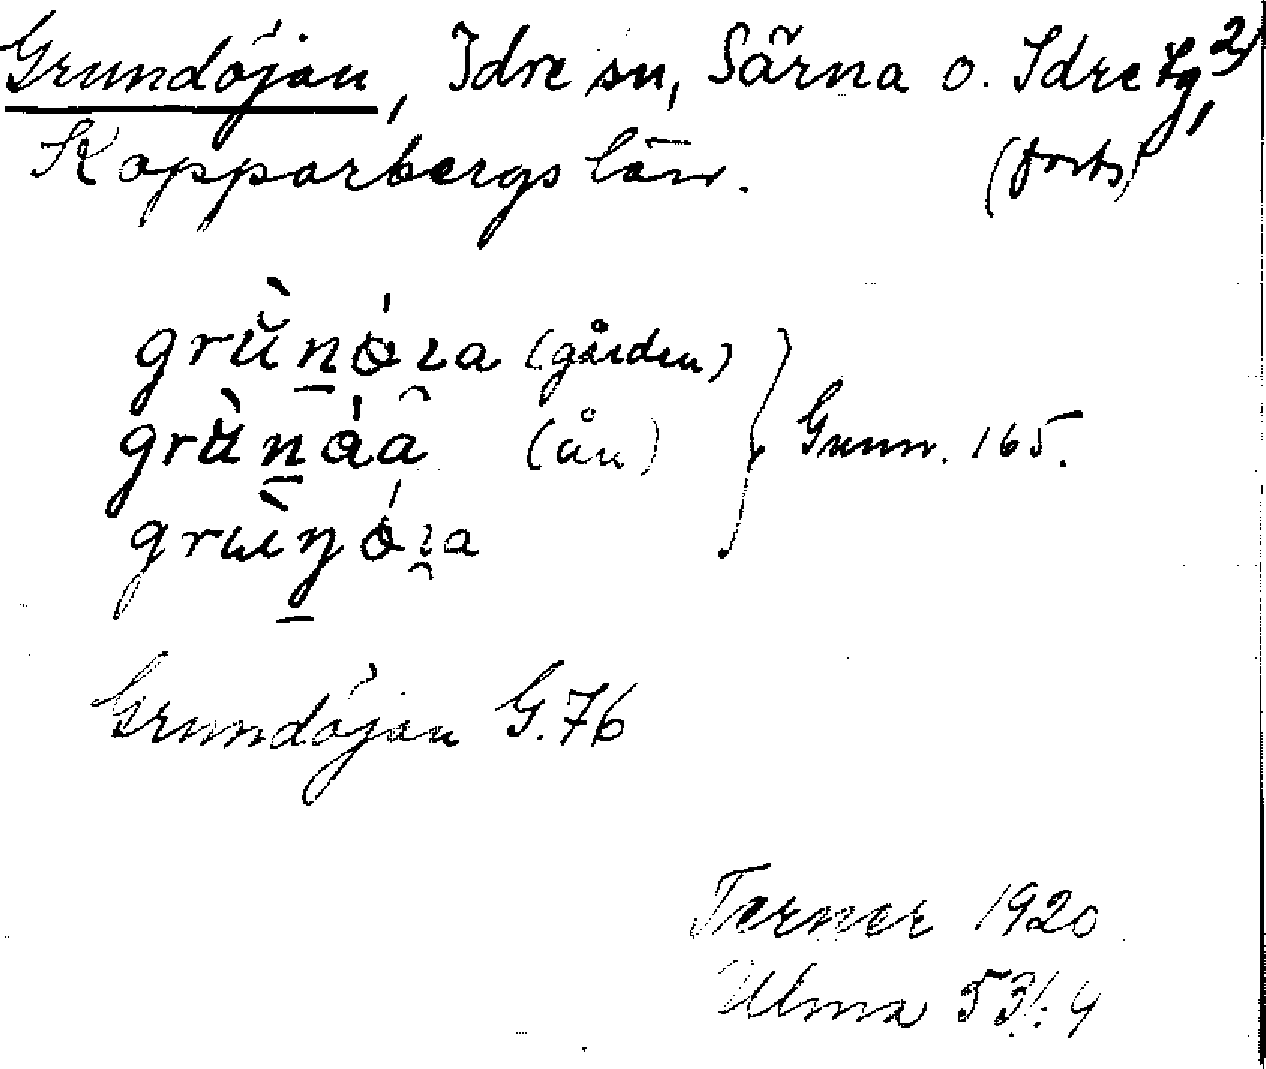 Grundöjan, Idre sn, Särna o. Idre tg, 2)
Kopparbergs län. (forts)
grùn̲óɿa (gården)
grùn̲áâ (ån) } Gunn. 165.
grɯ̀ŋ̲óɿa
Grundöjan G.76
Terner 1920
Ulma 53:4